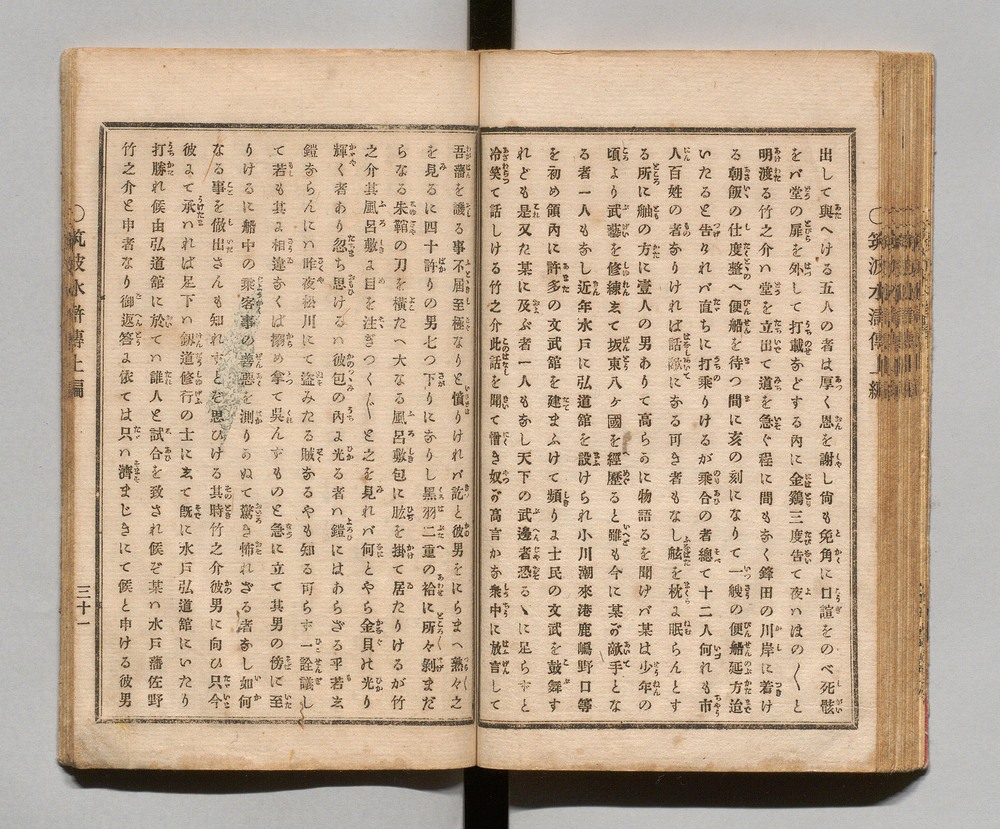 出して與へける五人の者は厚く恩を謝し尙も兎角に口諠をのべ死骸
をバ堂の扉を外して打載などする內に金鷄三度告て夜ハほの〲と
明渡る竹之介ハ堂を立出て道を急ぐ程に間もなく鋒田の川岸に着け
る朝飯の仕度整へ便船を待つ間に亥の刻になりて一艘の便船延方迨
いたると告られバ直ちに打乘りけるが乘合の者總て十二人何れも市
人百姓の者なりければ話敵になる可き者もなし舷を枕よ眠らんとす
る所に舳の方に壹人の男ありて高らかに物語るを聞けバ某は少年の
頃より武藝を修練えて坂東八ヶ國を經歷ると雖も今に某が敵手とな
る者一人もなし近年水戸に弘道館を設けられ小川潮來港鹿嶋野口等
を初め領內に許多の文武館を建まふけて頻りよ士民の文武を鼓舞す
れども是又た某に及ぶ者一人もなし天下の武邊者恐るゝに足らずと
冷笑て話しける竹之介此話を聞て憎き奴が高言かな衆中に放言して
吾藩を譏る事不屆至極なりと憤りけれバ訖と彼男をにらまへ熟々之
を見るに四十許りの男七つ下りになりし黑羽二重の袷に所々剝まだ
らなる朱鞘の刀を橫たへ大なる風呂敷包に肱を掛て居たりけるが竹
之介其風呂敷よ目を注ぎつく〲と之を見れバ何とやら金具の光り
輝く者あり忽ち思けるハ彼包の內よ光る者ハ鎧にはあらざる乎若え
鎧ならんにハ昨夜松川にて盜みたる賊なるやも知る可らず一詮議し
て若も其よ相違なくば搦め拿て呉んずものと急に立て其男の傍に至
りけるに船中の乘客事の善惡を測りかぬて驚き怖れざる者なし如何
なる事を倣出さんも知れずと思ひける其時竹之介彼男に向ひ只今
彼よて承ハれば足下ハ釼道修行の士にえて旣に水戸弘道館にいたり
打勝れ候由弘道館に於てハ誰人と試合を致され候ぞ某ハ水戸藩佐野
竹之介と申者なり御返答よ依ては只ハ濟まじきにて候と申ける彼男
〇筑波水滸傳上編
三十一